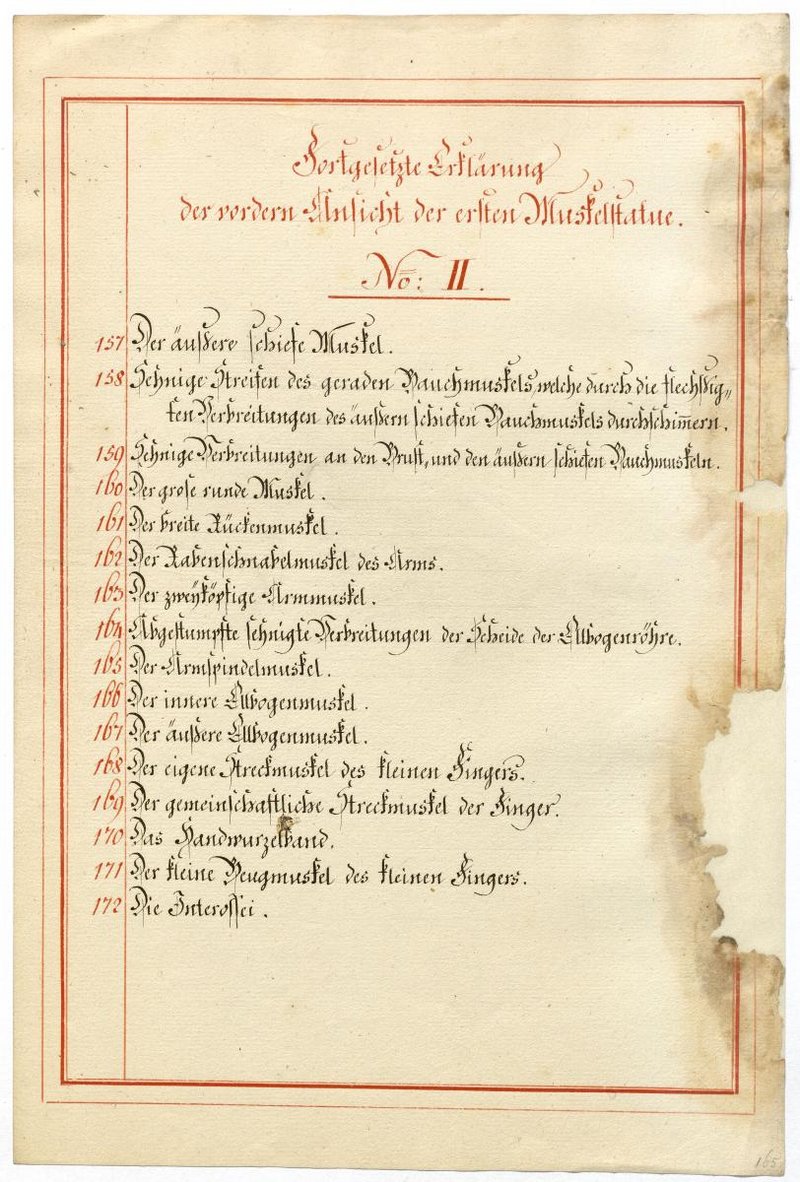 Fortgesetzte Erklärung
der vordern Ansicht der ersten Muskelstatue.
No: II.
157 Der äußere schiefe Muskel.
158 Sehnige Streifen des geraden Bauchmuskels, welche durch die flechßig„
ten Verbreitungen des äußern schiefen Bauchmuskels durchschim̅ern.
159 Sehnige Verbreitungen an den Brust, und den äußern schiefen Bauchmuskeln.
160 Der grose runde Muskel.
161 Der breite Rückenmuskel.
162 Der Rabenschnabelmuskel des Arms.
163 Der zweÿköpfige Armmuskel.
164 Abgestumpfte sehnigte Verbreitungen der Scheide der Ellbogenröhre.
165 Der Armspindelmuskel.
166 Der innere Ellbogenmuskel.
167 Der äußere Ellbogenmuskel.
168 Der eigene Streckmuskel des kleinen Fingers.
169 Der gemeinschaftliche Streckmuskel der Finger.
170 Das Handwurzelband.
171 Der kleine Beugmuskel des kleinen Fingers.
172 Die Interossei.
165